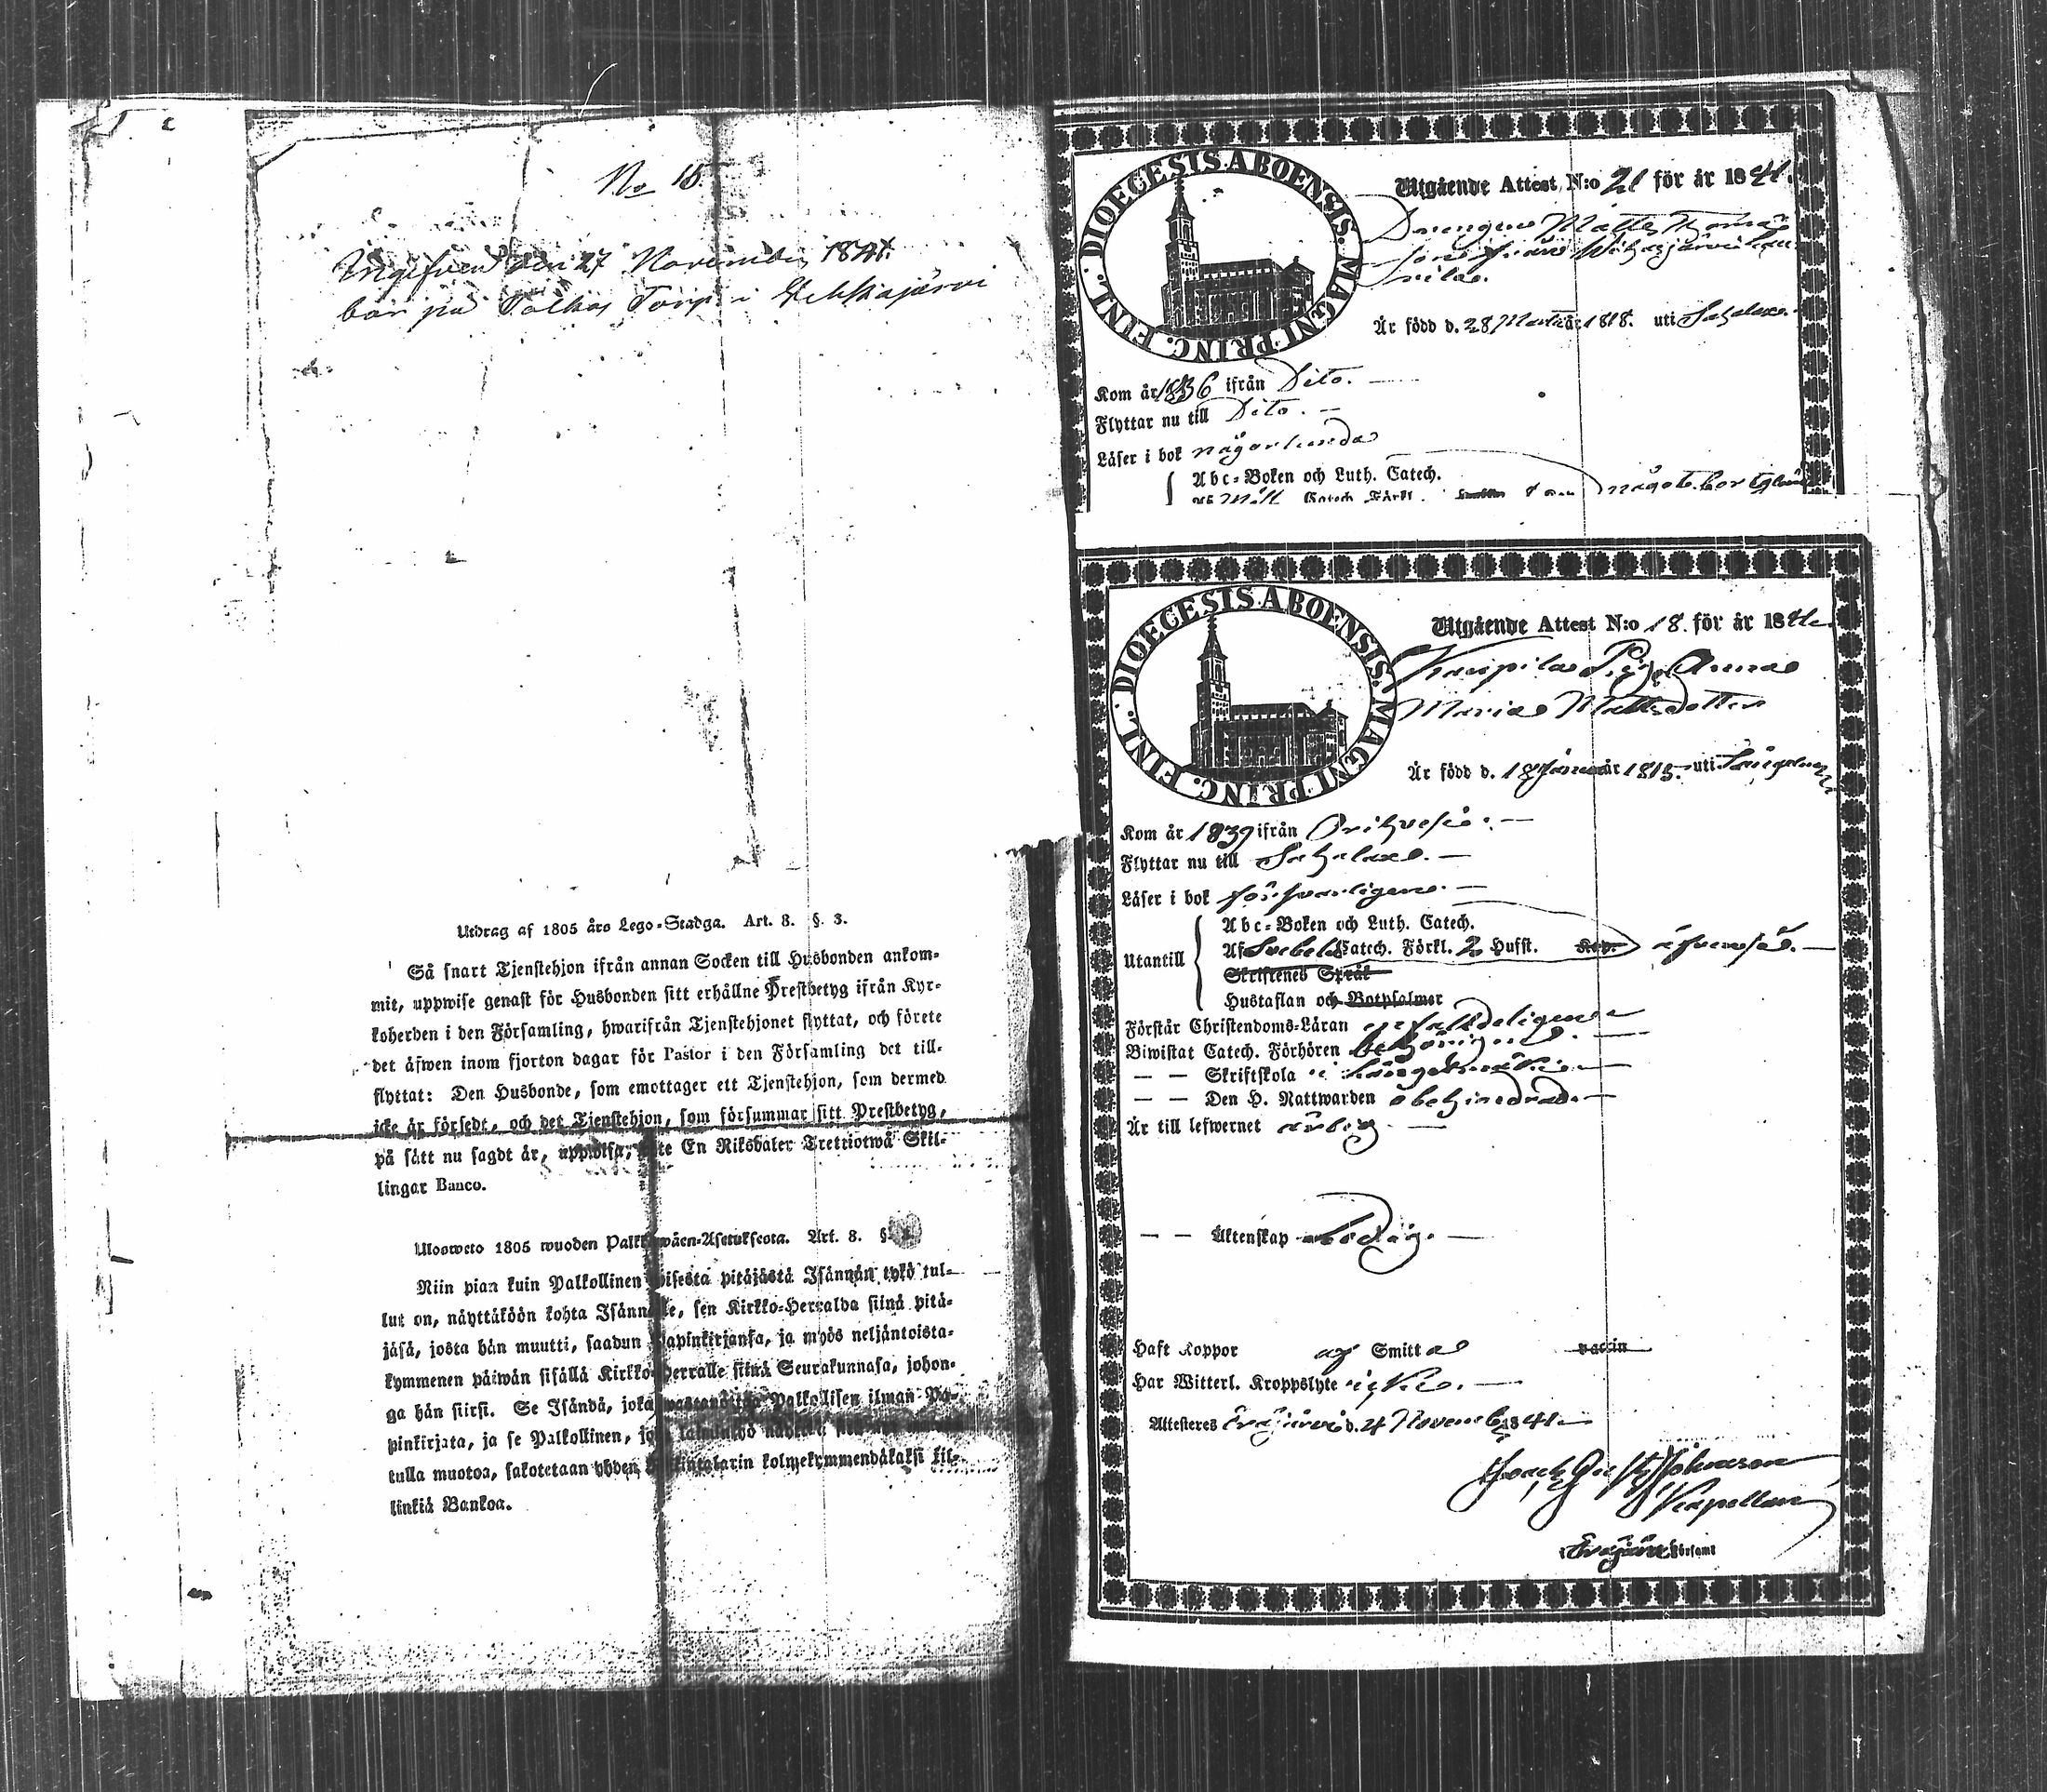 No 15.
Ingifven den 27 November 1841.
bor på Torp i
Utdrag af 1805 års Lego-Stadga. Art. 8. §. 3.
Så snart Tjenstehjon ifrån annan Socken till Husbonden ankom-
mit, uppwise genast för Husbonden sitt erhållne Prestbetyg ifrån Kyr-
koherden i den Församling, hwarifrån Tjenstehjonet flyttat, och förete
det äfwen inom fjorton dagar för Pastor i den Församling det till-
flyttat: Den Husbonde, som emottager ett Tjenstehjon, som dermed
icke är försedt, och det Tjenstehjon, som försummar sitt Prestbetyg,
på sätt nu sagdt är, uppwisa, bôte En Riksdaler Trettiotwå Skil-
lingar Banco.
Ulosweto 1805 wuoden Palkkawäen-Asetuksesta. Art. 8. §.
Niin pian kuin Palkollinen toisesta pitäjästä Isännän tykö tul-
lut on, näyttäköön kohta Isännälle, sen Kirkko-Herralda siinä pitä-
jäsä, josta hän muutti, saadun Papinkirjansa, ja myös neljäntoista-
kymmenen päiwän sisällä Kirkko-Herralle siinä Seurakunnasa, johon-
ga hän siirsi. Se Isändä, joka wastanottaa Palkollisen ilman Pa-
pinkirjata, ja se Palkollinen, jok
tulla muotoa, sakotetaan yhden Pankintalarin kolmekymmendäkaksi kil-
linkiä Bankoa.
DIOECESIS ABOENSIS. MAGNI PRINC. FINL.
Utgående Attest N:o 21 för år 1841.
Drengen Matts Thomas
son från Wihasjärvi
nila.
Är född d. 28 Martii år 1818. uti Sahalax.
Kom år 1836 ifrån Dito.
Flyttar nu till Dito.
Läser i bok någorlunda
Abc-Boken och Luth. Catech.
Catech. Förkl. något
DIOECESIS ABOENSIS. MAGNI PRINC. FINL.
Utgående Attest N:o 18. för år 1841
Pig. Anna
Maria Mattsdotter
Är född d. 18 Januar år 1815. uti Längelmäki
Kom år 1839 ifrån Orihvesi.
Flyttar nu till Sahalax.
Läser i bok försvarligen.
Utantill
Abc-Boken och Luth. Catech.
Af Svebel. Catech. Förkl. 2 Hufst. Kap. äfvenså.
Skriftenes Språk
Hustaflan och Botpsalmer
Förstår Christendoms-Läran enfaldeligen
Biwistat Catech. Förhören behörigen.
— — Skriftskola i Längelmäki.
— — Den H. Nattwarden obehindrad.
Är till lefwernet ärbar.
— — Äktenskap ledig.
Haft Koppor af Smitta vaccin
Har Witterl. Kroppslyte icke.
Attesteres Eräjärvi d. 4 November 1841
Isach Gust. Johnsson
Kapellan
i Eräjärvi Församl